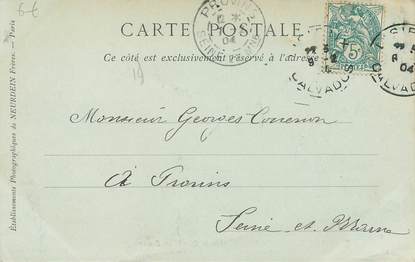 6€
CARTE POSTALE
Ce côté est exclusivement réservé à l'adresse
PROVINS
SEINE
04
19
5
CALVADOS
CALVADOS
04
Monsieur Georges
à Provins
Seine et Marne
Établissements Photographiques de NEURDEIN Frères. — Paris